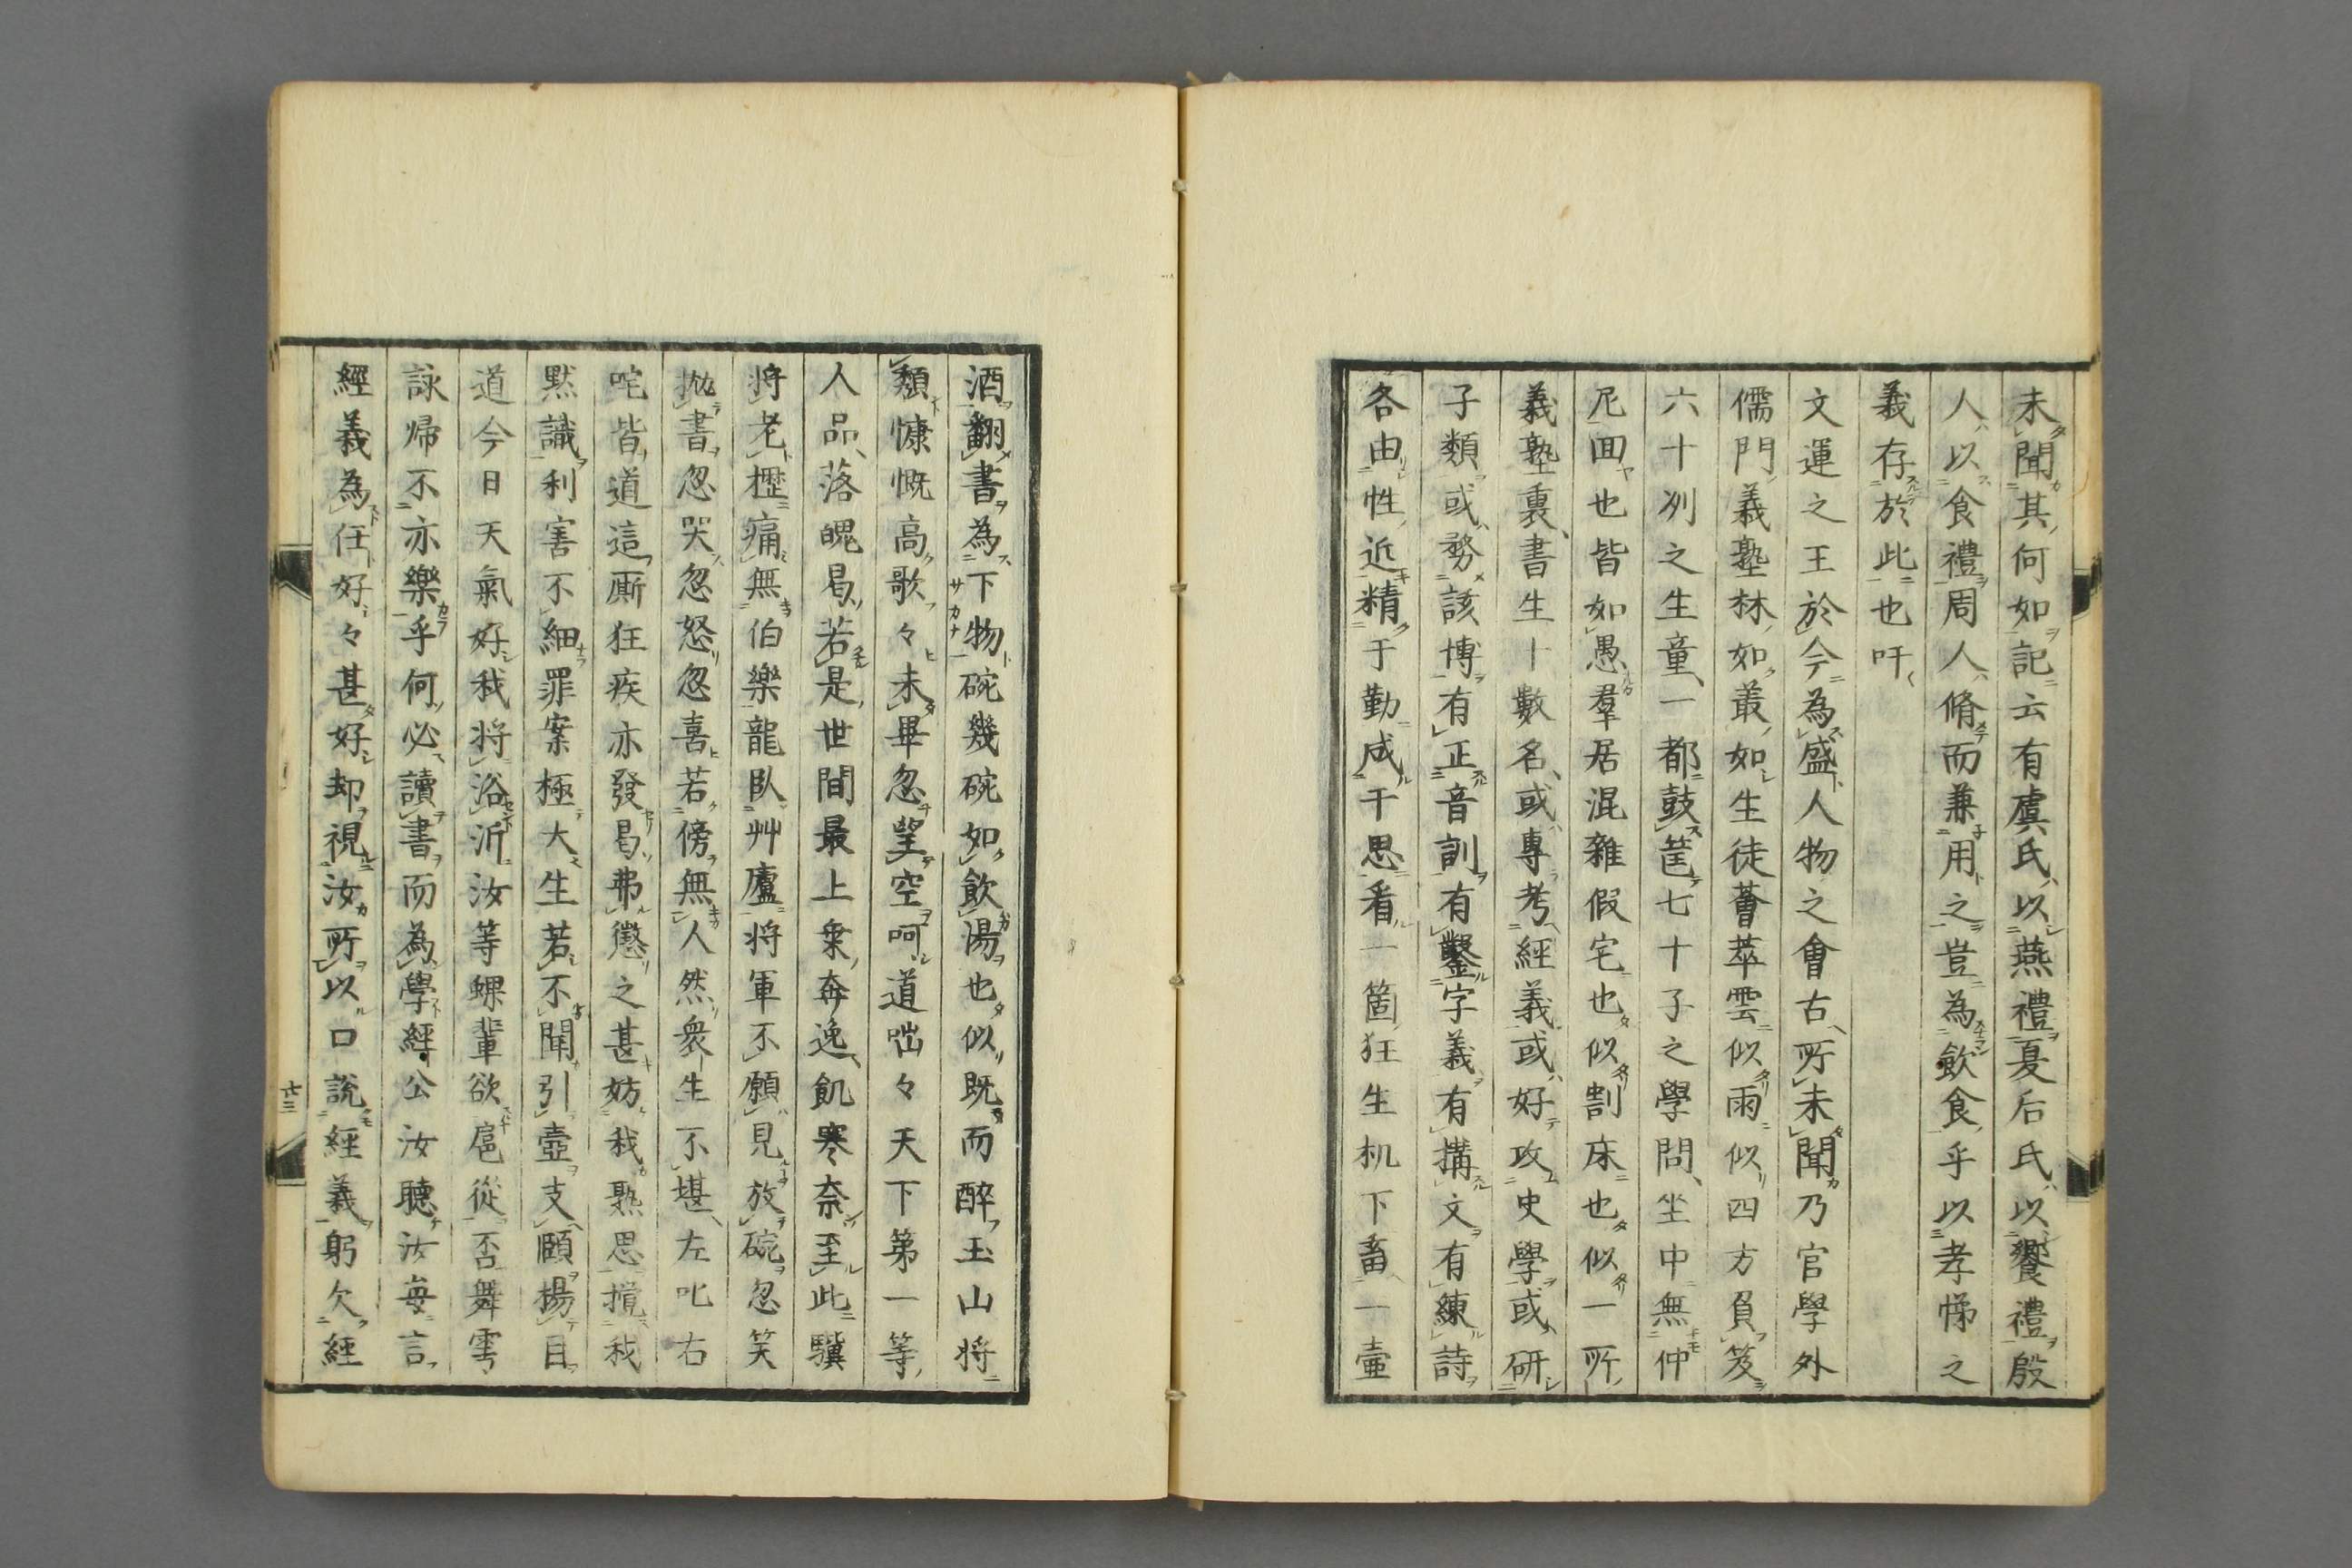 未聞其何如記云有虞氏以燕禮夏后氏以饗禮殷
人以食禮周人脩而兼用之豈為飲食乎以孝悌之
義存於此也吁
文運之王於今為盛人物之會古所未聞乃官學外
儒門義塾林如叢如生徒薈萃雲似雨似四方負笈
六十列之生童一都鼓篋七十子之學問坐中無仲
尼囬也皆如愚羣居混雜假宅也似割床也似一所
義塾裏書生十數名或專考經義或好攻史學或研
子類或務該博有正音訓有鑿字義有搆文有練詩
各由性近精于勤成于思看一箇狂生机下畜一壷
酒翻書為下物碗幾碗如飲湯也似既而醉玉山将
頽慷慨高歌々未畢忽望空呵道咄々天下第一等
人品落魄曷若是世間最上乗奔逸飢寒奈至此驥
将老櫪痛無伯樂龍臥艸廬将軍不願見放碗忽笑
抛書忽哭忽怒忽喜若傍無人然衆生不堪左叱右
咤皆道這厮狂疾亦發曷弗懲之甚妨我熟思攪我
黙識利害不細罪案極大生若不聞引壺支頤揚目
道今日天氣好我将浴沂汝等螺輩欲扈從否舞雩
詠帰不亦樂乎何必讀書而為學經公汝聽汝每言
經義為任好々甚好却視汝所以口說經義躬欠經